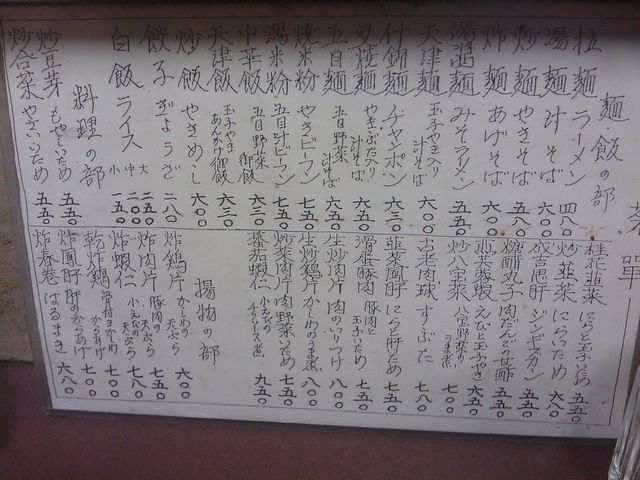 菜單
麺・飯の部
拉麺 ラーメン 四八〇
湯麺 汁そば 六〇〇
炒麺 やきそば 五八〇
炸麺 あげそば 六〇〇
湯醤麺 みそラーメン 五五〇
天津麺 玉子やき入り汁そば 六〇〇
什錦麺 チャンポン 六三〇
叉焼麺 やきぶた入り汁そば 七五〇
五目麺 五目野菜汁そば 六五〇
焼米粉 やきビーフン 六五〇
湯米粉 五目汁ビーフン 七五〇
中華飯 五目野菜御飯 六三〇
天津飯 玉子やきあんかけ御飯 六三〇
炒飯 やきめし 六〇〇
餃子 ぎょうざ 二八〇
白飯 ライス 大 二五〇 中 二〇〇 小 一五〇
料理の部
炒豆芽 もやしいため 五五〇
炒合菜 やさいいため 五五〇
桂花韮菜 にらと玉子いため 五五〇
炒韮菜 にらいため 五五〇
成吉思肝 ジンギスカン 六八〇
糖醋丸子 肉だんごの甘酢 五五〇
芙蓉蝦 えびと玉子やき 六五〇
炒八宝菜 八宝野菜のうま煮 七〇〇
古老肉球 すぶた 七八〇
韮菜鳳肝 にらと肝いため 七五〇
滑蛋豚肉 豚肉と玉子いため 七五〇
生炒肉片 肉のいりつけ 八〇〇
生炒鶏片 かしわのうま煮 八〇〇
炒菜肉片 肉野菜いため 七五〇
蕃茄蝦仁 小えびのチャソース煮 九五〇
揚物の部
炸鶏片 かしわの天ぷら 六〇〇
炸肉片 豚肉の天ぷら 七五〇
炸蝦仁 小えびの天ぷら 八五〇
乾炸鶏 骨付きかしわからあげ 七〇〇
炸鳳肝 肝のからあげ 七〇〇
炸春巻 はるまき 六八〇